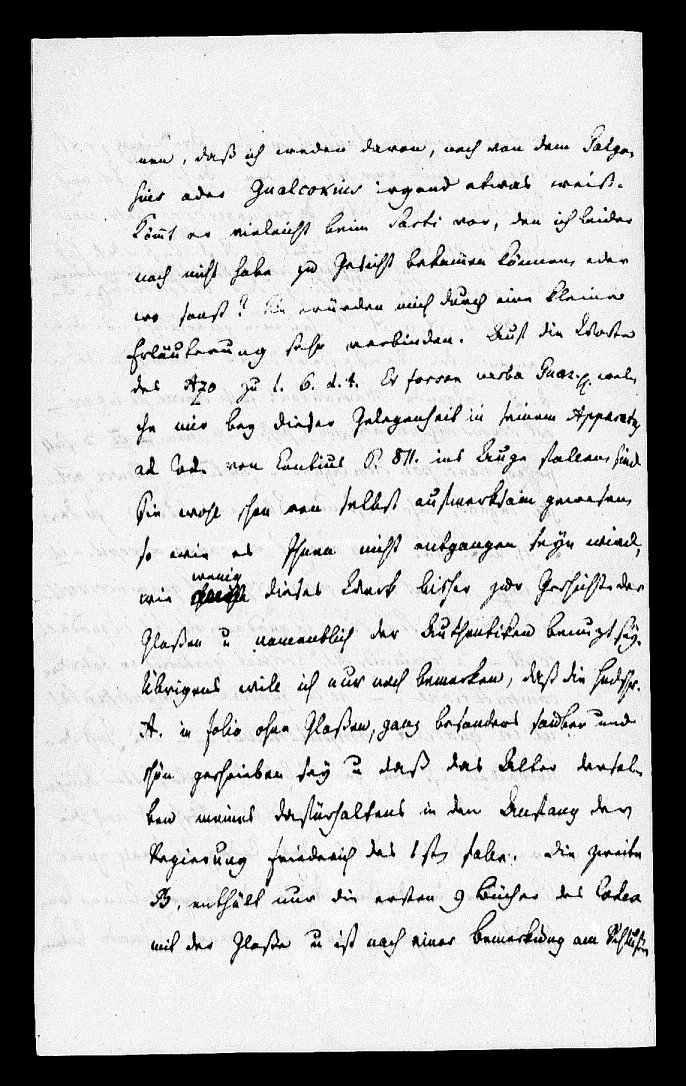 nen, daß ich weder davon, noch von dem Salge-
hier oder Gualcosius irgend etwas weiß.
Kömt er vielleicht beim Sarti vor, den ich leider
noch nicht habe zu Gesicht bekommen können, oder
wo sonst? Sie würden mich durch eine kleine
Erläuterung sehr verbinden. Auf die Worte
des Azo zu l. 6. d. t. Et forsan verba Guar. p. wel-
che mir bey dieser Gelegenheit in seinem Apparatus
ad Cod. von Contius P. 811. ins Auge fallen, sind
Sie wohl schon von selbst aufmerksam gewesen,
so wie es Ihnen nicht entgangen seyn wird,
wie wenig dieses Werk bisher zur Geschichte der
Gloßen u namentlich der Authentiken benuzt sey.
Uebrigens will ich nur noch bemerken, daß die Hdschr.
A. in folio ohne Gloßen, ganz besonders sauber und
schön geschrieben sey u daß das Alter dersel-
ben meines dafürhaltens in den Anfang der
Regierung Friederich des 1sten falle. Die zweite
B, enthält nur die ersten 9 Bücher des Codex
mit der Gloße u ist nach einer Bemerkung am Schluße